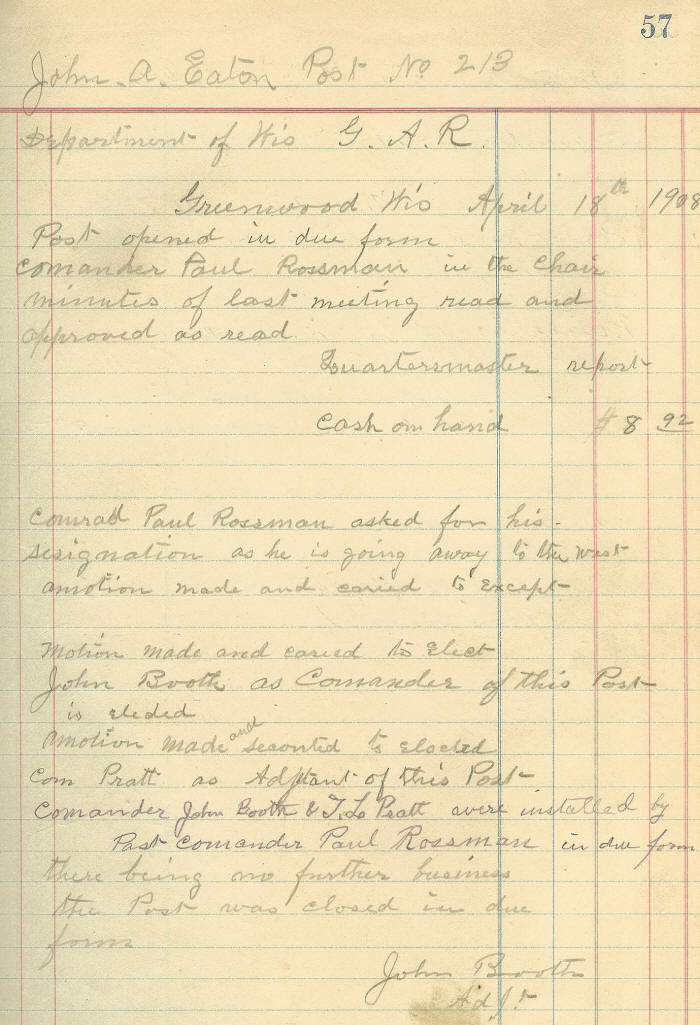 57
John. A. Eaton Post No 213
Department of Wis G. A. R.
Greenwood Wis April 18th 1908
Post opened in due form
Comander Paul Rossman in the Chair
minutes of last meeting read and
approved as read
Quartersmaster report
Cash on hand $8 92
Comrad Paul Rossman asked for his
resignation as he is going away to the west
amotion made and caried to Except
Motion made and caried to Elect
John Booth as Comander of this Post
is eleded
Amotion made and seconted to elected
Com Pratt as Adjtant of this Post
Comander John Booth & T. L. Pratt were installed by
Past Comander Paul Rossman in due form
there being no further business
the Post was closed in due
form
John Booth
Adjt